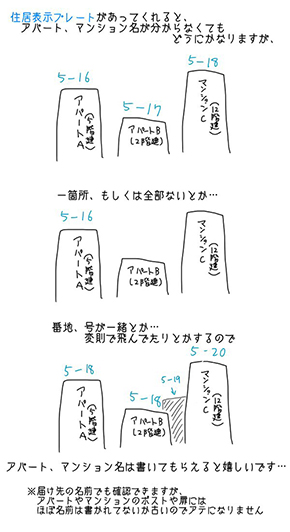 住居表示プレートがあってくれると、
アパート、マンション名が分からなくても
どうにかなりますが、
5-16
5-17
5-18
アパートA
アパートB
(2階建)
マンションC
(12階建)
一箇所、もしくは全部ないとか…
5-16
アパートA
アパートB
(2階建)
マンションC
(12階建)
番地、号が一緒とか…
変則で飛んでたりとかするので
5-18
5-18
5-19
5-20
アパートA
アパートB
(2階建)
マンションC
(12階建)
アパート、マンション名は書いてもらえると嬉しいです…
※届け先の名前でも確認できますが、
アパートやマンションのポストや扉には
ほぼ名前は書かれてないか古いのでアテになりません